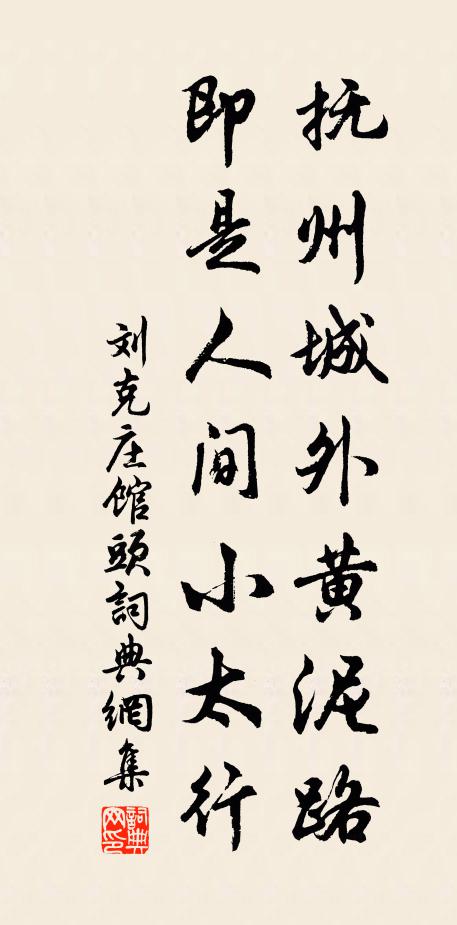 抚州城外黄泥路
即是人间小太行
刘克庄馆頭詞典網集
詞典网印